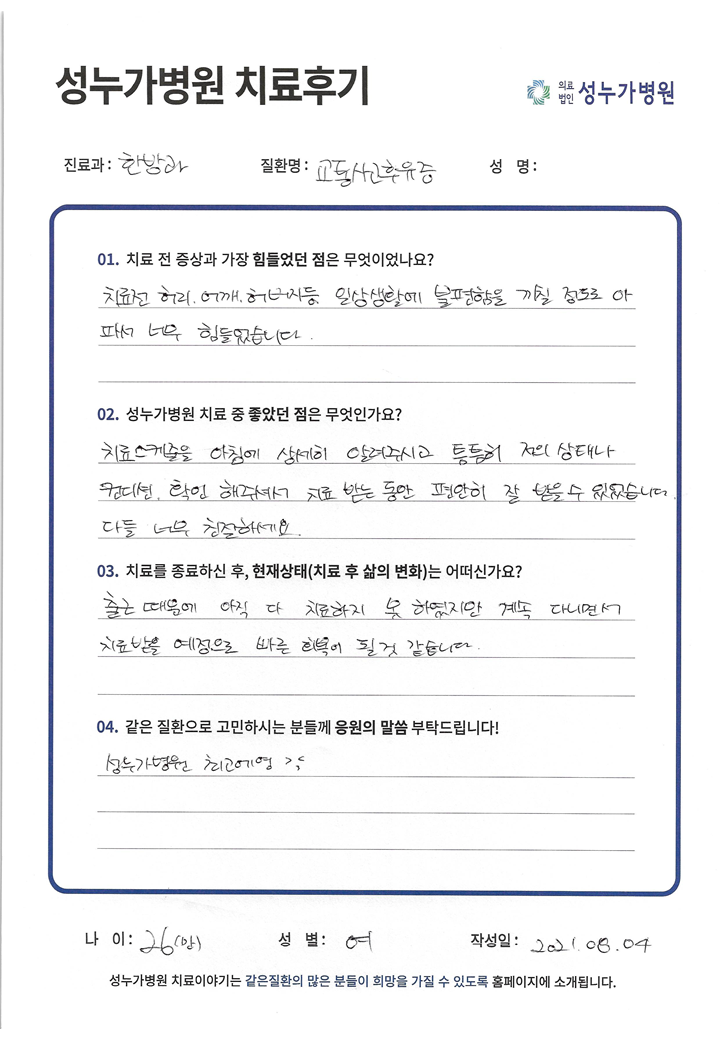 성누가병원 치료후기
의료법인 성누가병원
진료과: 한방과 질환명: 교통사고후유증 성 명:
01. 치료 전 증상과 가장 힘들었던 점은 무엇이었나요?
치료전 허리, 어깨, 허벅지등 일상생활에 불편함을 끼칠 정도로 아
파서 너무 힘들었습니다.
02. 성누가병원 치료 중 좋았던 점은 무엇인가요?
치료스케줄을 아침에 상세히 알려주시고 틈틈히 저의 상태나
컨디션, 확인 해주셔서 치료 받는 동안 편안히 잘 받을수 있었습니다.
다들 너무 친절하세요.
03. 치료를 종료하신 후, 현재상태(치료 후 삶의 변화)는 어떠신가요?
출근 때문에 아직 다 치료하지 못 하였지만 계속 다니면서
치료받을 예정으로 빠른 회복이 될것 같습니다.
04. 같은 질환으로 고민하시는 분들께 응원의 말씀 부탁드립니다!
성누가병원 최고예영
나 이: 26(만) 성 별: 여 작성일: 2021.08.04
성누가병원 치료이야기는 같은질환의 많은 분들이 희망을 가질 수 있도록 홈페이지에 소개됩니다.